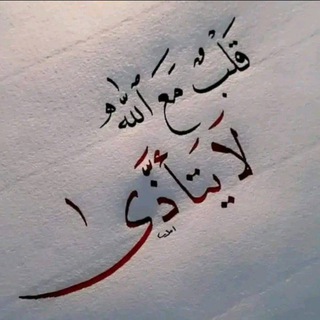 قَلْبٌ مَعَ ٱللَّهِ
لَا يَتَأَذَّى